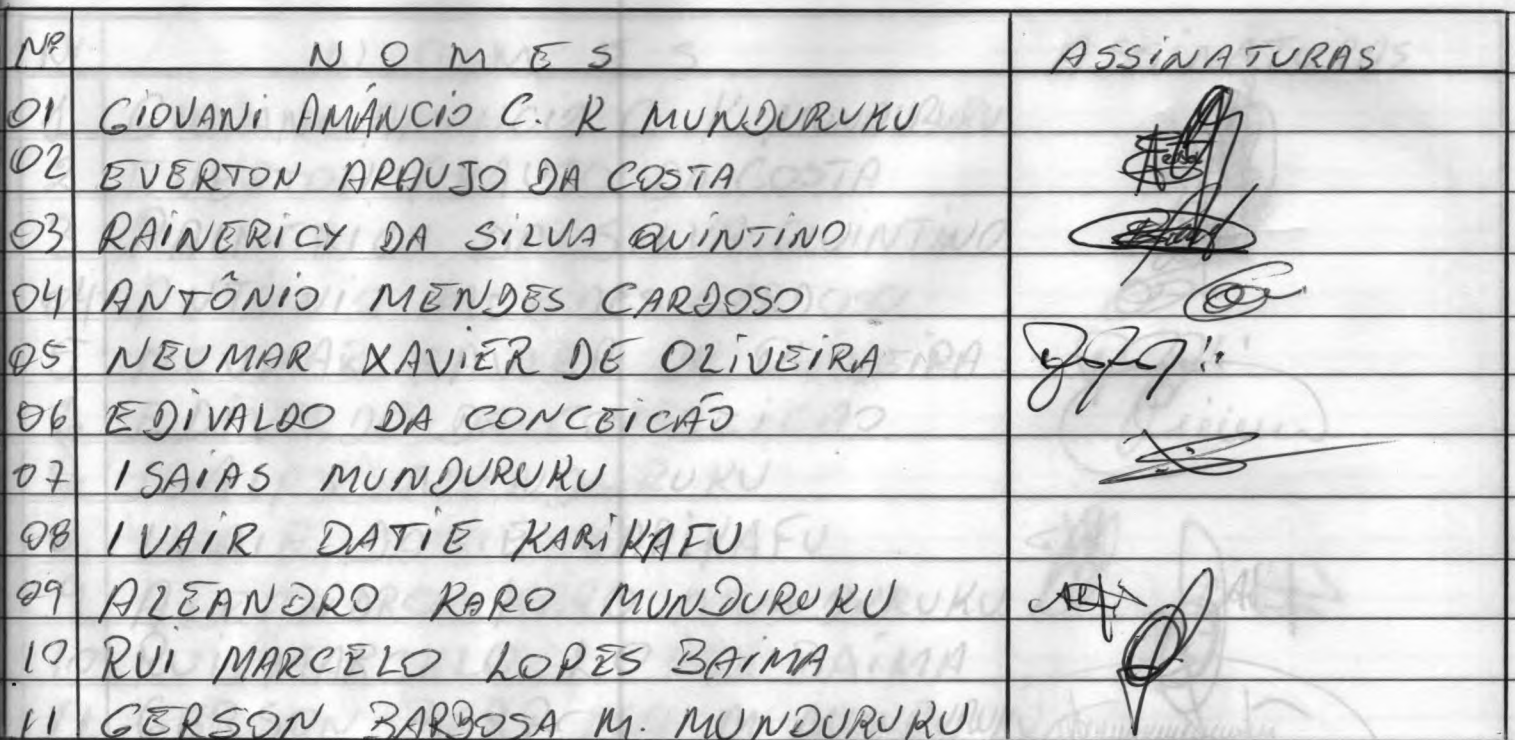 Nº NOMES ASSINATURAS
01 GIOVANI AMÂNCIO C. R MUNDURUKU
02 EVERTON ARAUJO DA COSTA
03 RAINERICY DA SILVA QUINTINO
04 ANTÔNIO MENDES CARDOSO
05 NEUMAR XAVIER DE OLIVEIRA
06 EDIVALDO DA CONCEICÃO
07 ISAIAS MUNDURUKU
08 IVAIR DATIE KARIKAFU
09 ALEANDRO KARO MUNDURUKU
10 RUI MARCELO LOPES BAIMA
11 GERSON BARBOSA M. MUNDURUKU